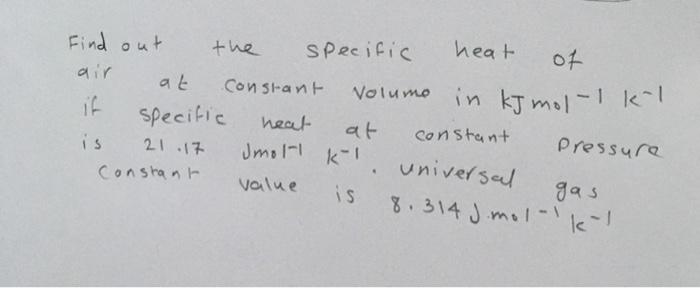 Find out the specific heat of
air at constant volume in kJ mol-1 k-1
if specific heat at constant pressure
is 21.17 Jmol-1 k-1. universal gas
constant value is 8.314 J.mol-1 k-1